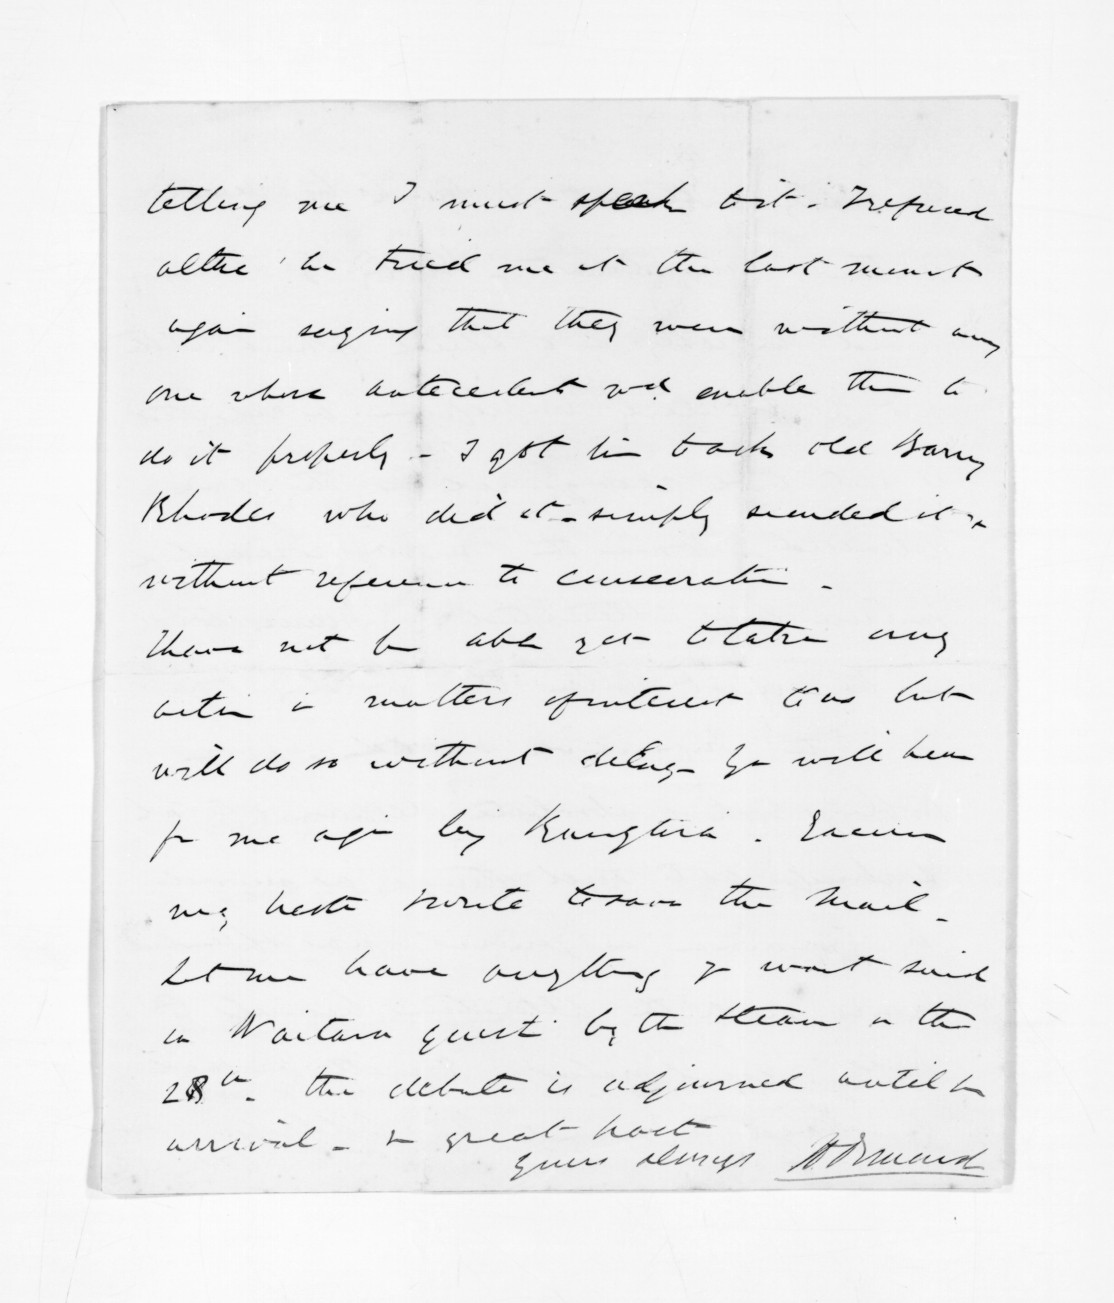 telling me I must speak to it. I refused
altho' he tried me at the last moment
again saying that they were without any
one whose antecedents wd. enable them to
do it properly - I got him to ask old Barny
Rhodes who did it - simply seconded it &
without reference to consecration -
I have not be able yet to take any
action in matters of interest to us but
will do so without delay - Yr will hear
fr me again by Rangtira. Excuse
my haste I wrote to save the Mail -
Let me have anything yr want said
on Waitara quest by the steam on the
28th - the debate is adjourned until her
arrival - In great haste
yours always H Ormond